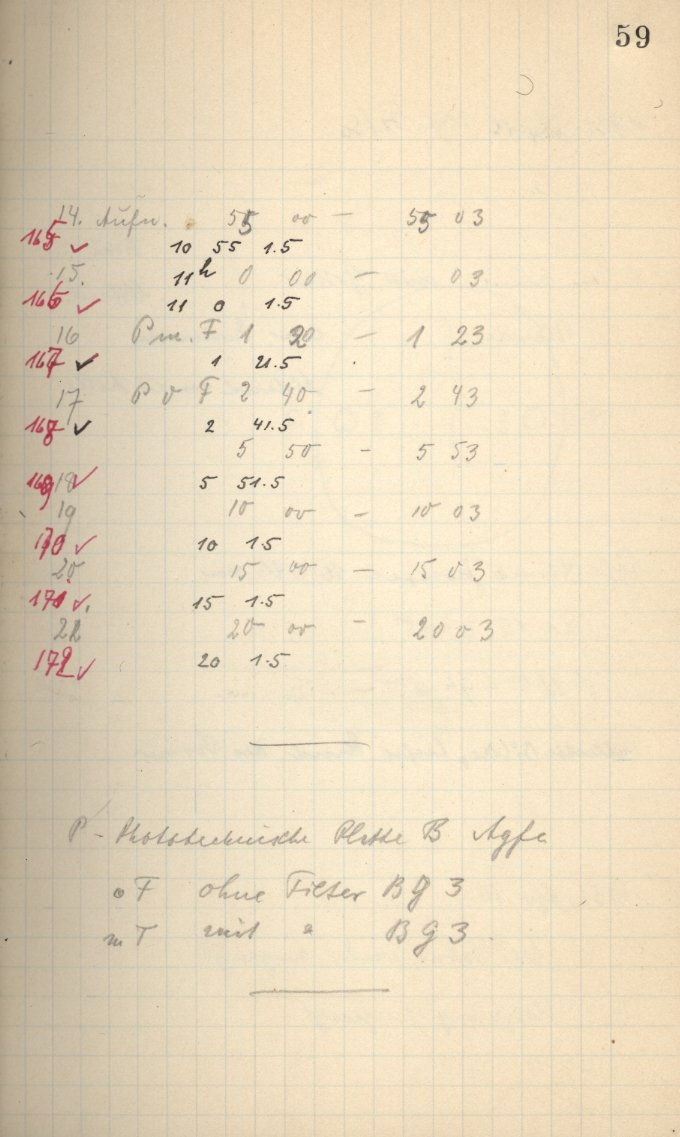 59
14. Aufn. 55 00 – 55 03
165 ✓ 10 55 1.5
15. 11h 0 00 – 03
166 ✓ 11 0 1.5
16 P m. F 1 20 – 1 23
167 ✓ 1 21.5
17 P o F 2 40 – 2 43
168 ✓ 2 41.5
5 50 – 5 53
169 18 ✓ 5 51.5
19 10 00 – 10 03
170 ✓ 10 1.5
20 15 00 – 15 03
171 ✓. 15 1.5
20 00 – 20 03
172 ✓ 20 1.5
P – Phototechnische Platte B Agfa
o F ohne Filter BG 3
m F mit " BG 3.